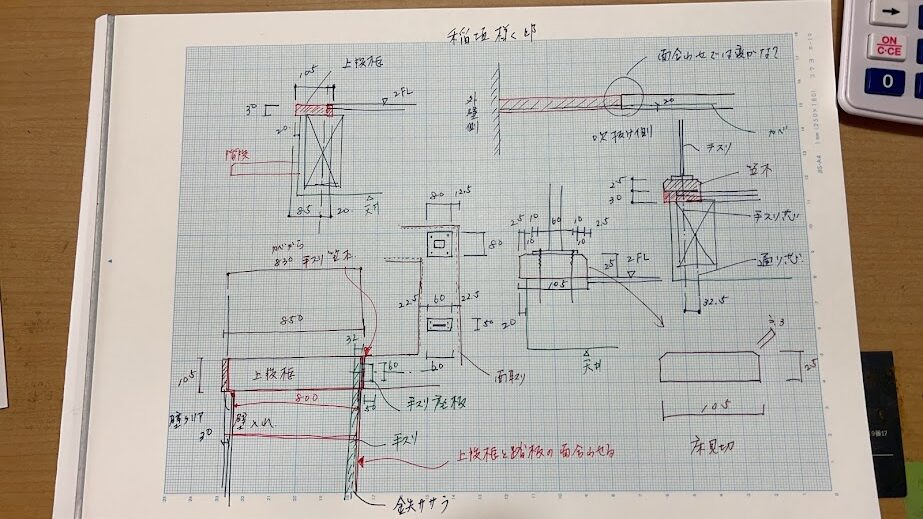 稲垣様く邸
上段框
105
2FL
30
20
階段
85
20
天井
面合わせでは裏がなて
外壁側
20
カベ
吹抜け側
手スリ
笠木
25
30
手スリ芯
通り芯
32.5
カベから
830 手スリ笠木
850
32
105
上段框
60
800
50
手スリ座板
壁クリア
30
壁入れ
手スリ
上段框と踏板の面合わせる
鉄ササラ
80
12.5
80
22.5
60
22.5
50
60
面取り
2.5
10
60
10
2.5
10
10
25
2FL
105
20
天井
3
25
105
床見切
ON
C·CE
0